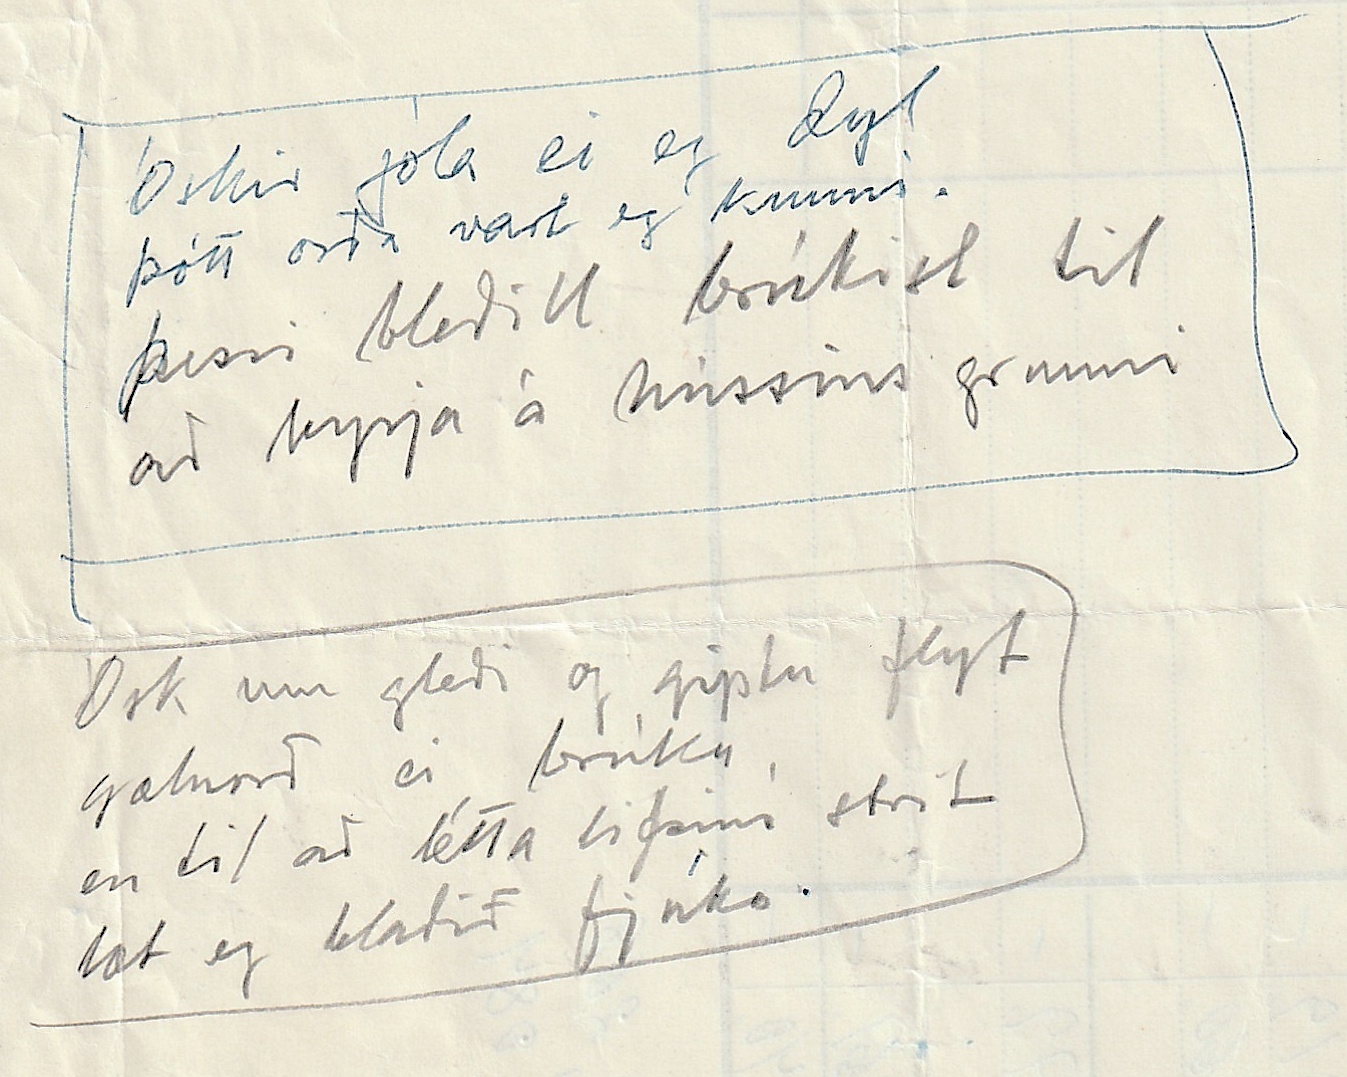 Óskir jóla ei eg dyl
þótt orða vart eg kunni.
þessi bleðill brúkist til
að byrja á hússins grunni
Ósk um gleði og giptu flyt
gæluorð ei brúka,
en til að létta lífsins strit
læt eg blaðið fjúka.